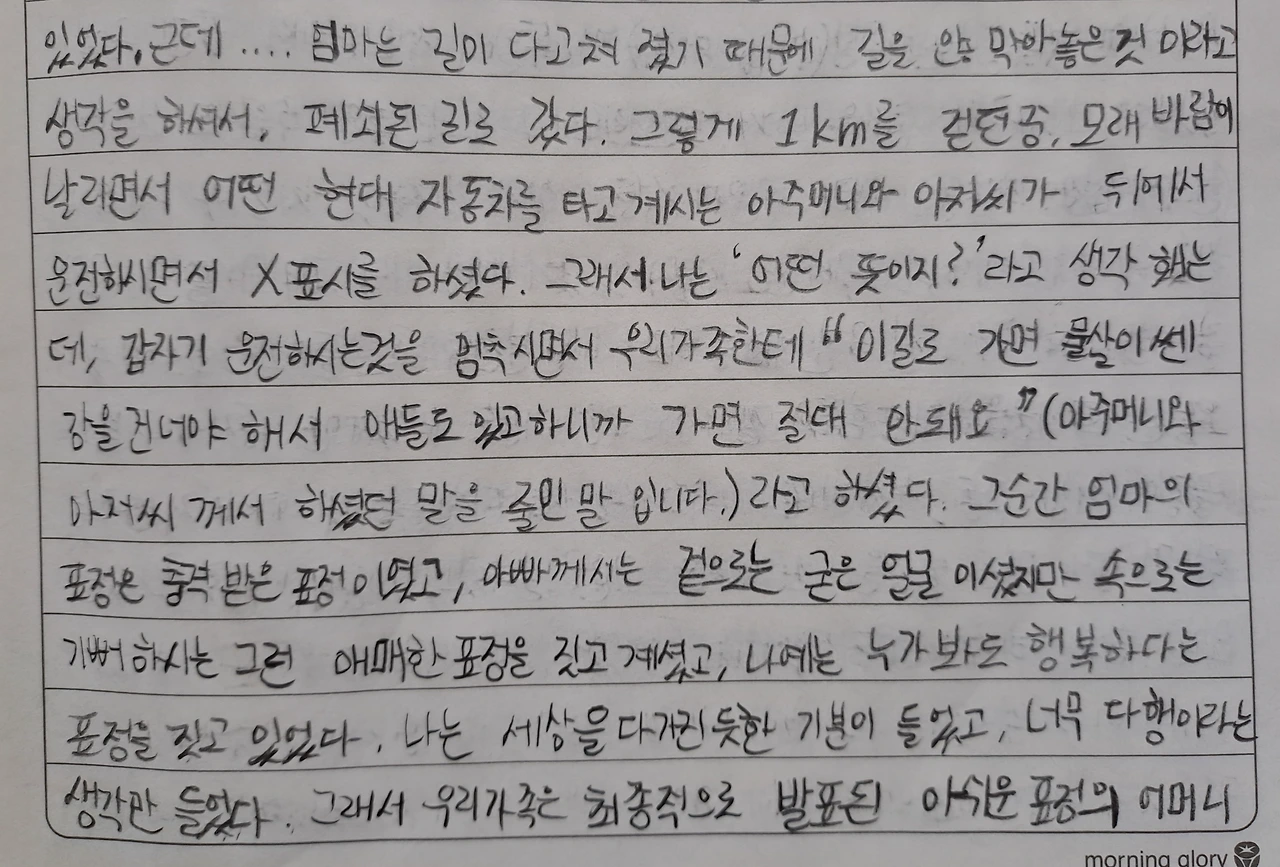 있었다. 근데 .... 엄마는 길이 다고쳐 졌기 때문에 길을 안 막아놓은 것 이라고
생각을 하셔서, 폐쇠된 길로 갔다. 그렇게 1km를 걷던중, 모래 바람이
날리면서 어떤 현대 자동차를 타고 계시는 아주머니와 아저씨가 뒤에서
운전하시면서 X표시를 하셨다. 그래서 나는 '어떤 뜻이지?'라고 생각 했는
데, 갑자기 운전하시는것을 멈추시면서 우리가족한테 "이길로 가면 물살이 쎈
강을 건너야 해서 애들도 있고하니까 가면 절대 안돼요"(아주머니와
아저씨 께서 하셨던 말을 줄인 말 입니다.)라고 하셨다. 그순간 엄마의
표정은 충격 받은 표정 이였고, 아빠께서는 겉으로는 굳은 얼굴 이셨지만 속으로는
기뻐하시는 그런 애매한 표정을 짓고 계셨고, 나에는 누가봐도 행복하다는
표정을 짓고 있었다. 나는 세상을 다가진듯한 기분이 들었고, 너무 다행이라는
생각만 들었다. 그래서 우리가족은 최종적으로 발표된 아쉬운 표정의 어머니
morning glory